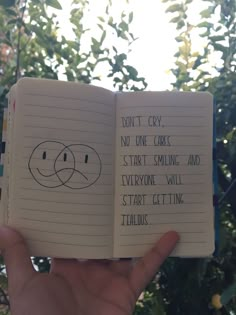 DON'T CRY,
NO ONE CARES
START SMILING AND
EVERYONE WILL
START GETTING
JEALOUS.